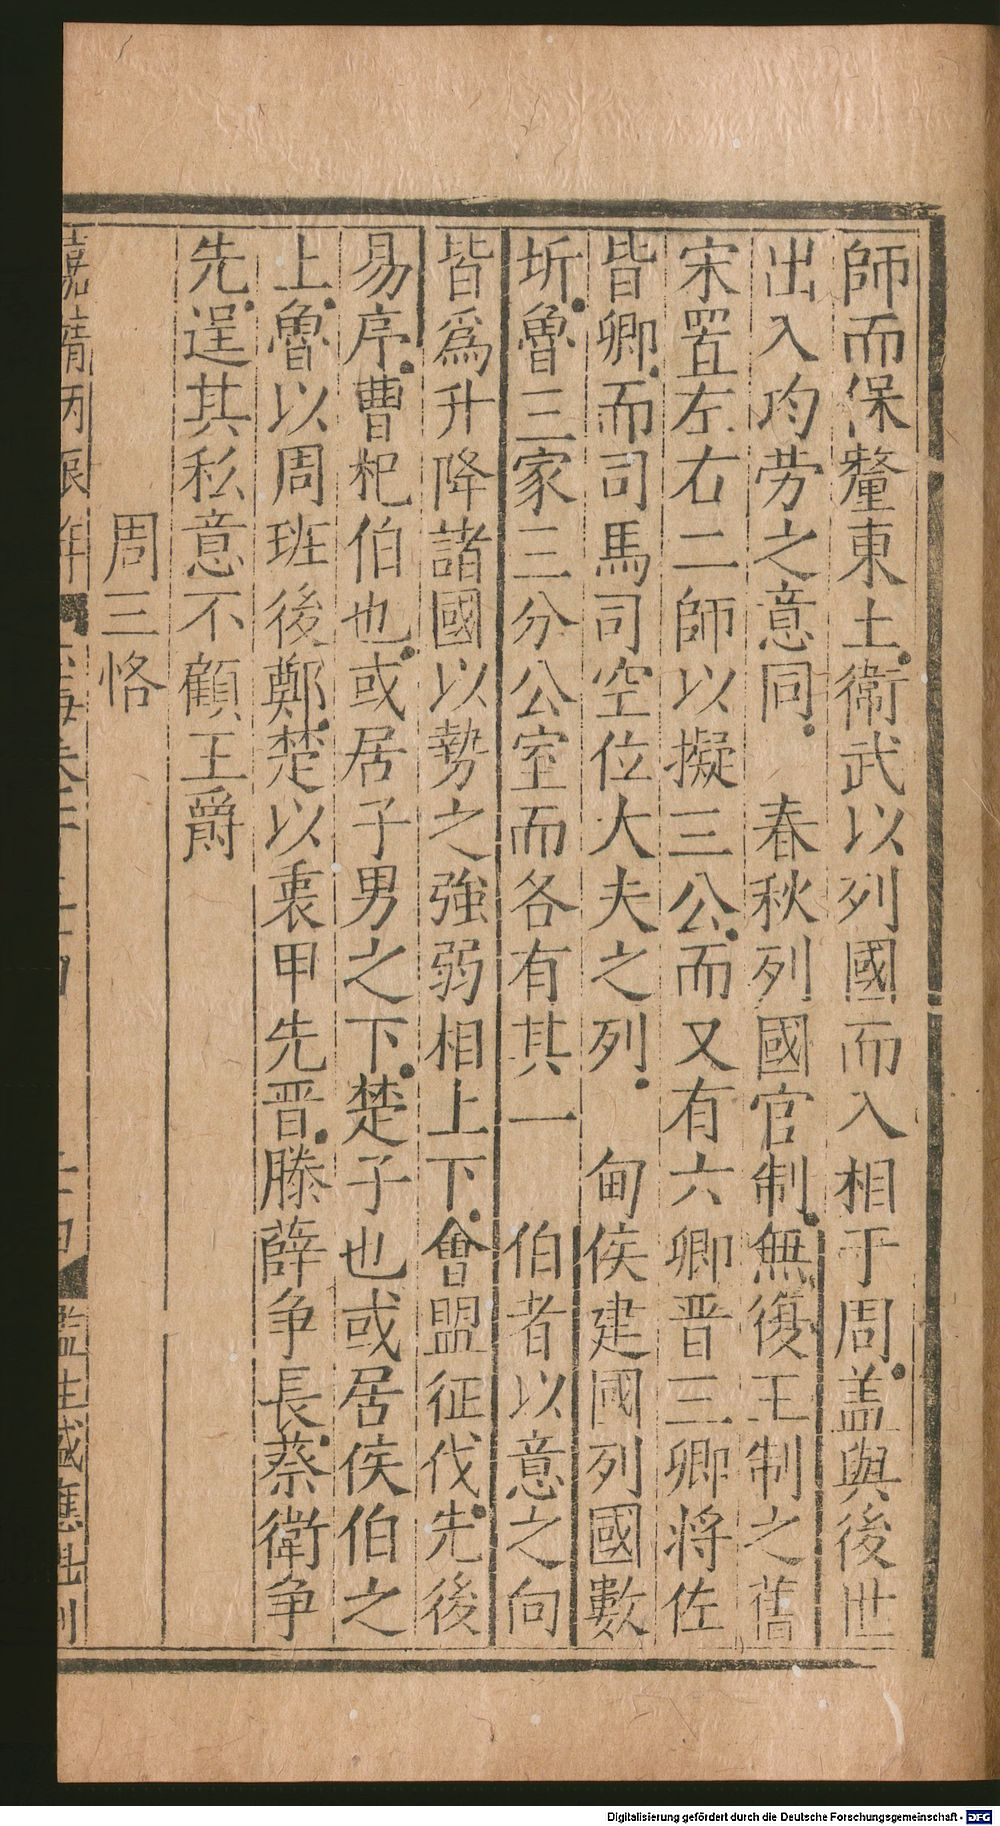 師而保釐東土衛武以列國而入相于周盖與後世
出入均劳之意同　春秋列國官制無復王制之舊
宋置左右二師以擬三公而又有六卿晋三卿将佐
皆卿而司馬司空位大夫之列　甸侯建國列國數
圻魯三家三分公室而各有其一　伯者以意之向
皆為升降諸國以勢之強弱相上下會盟征伐先後
易序曹杞伯也或居子男之下楚子也或居侯伯之
上魯以周班後鄭楚以衷甲先晋滕薛争長蔡衛争
先逞其私意不顧王爵
周三恪
嘉靖丙辰年
監生戚應
刊
Digitalisierung gefördert durch die Deutsche Forschungsgemeinschaft - DFG